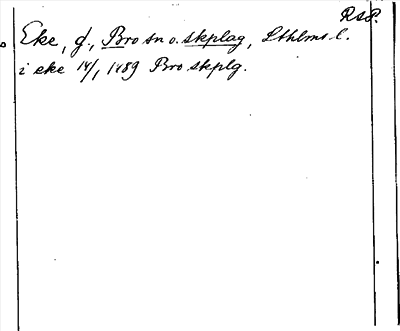 RSP.
Eke, g., Bro sn o. skplag, Lthlms l.
i eke 14/1 1489 Bro skplg.